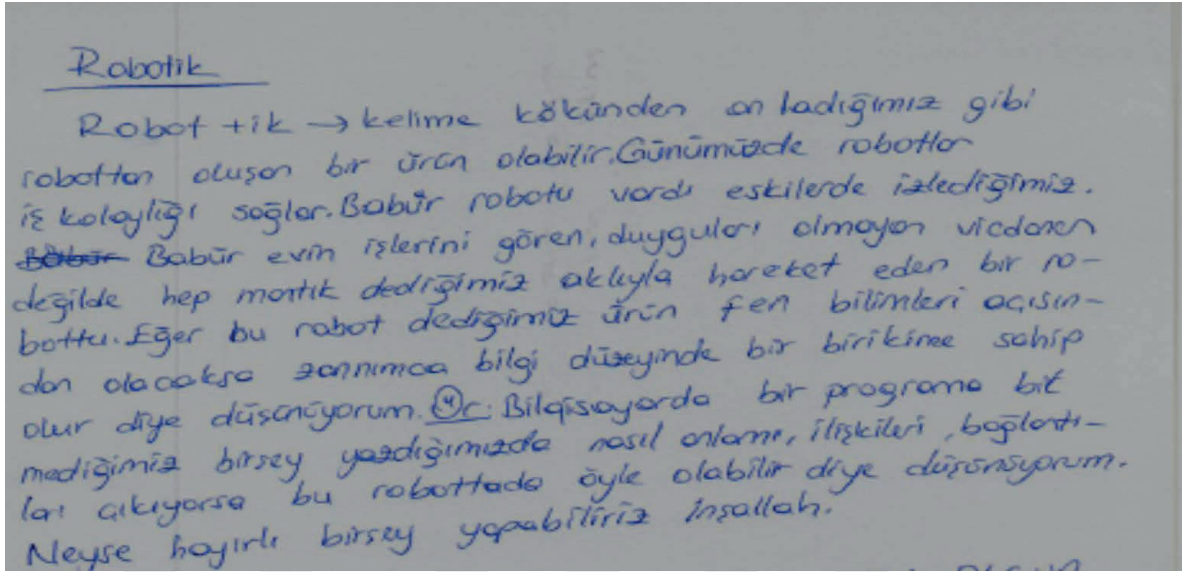 Robotik
Robot + ik → kelime kökünden anladığımız gibi
robottan oluşan bir ürün olabilir. Günümüzde robotlar
iş kolaylığı sağlar. Babür robotu vardı eskilerde izlediğimiz.
Babür Babür evin işlerini gören, duyguları olmayan vicdanen
değilde hep mantık dediğimiz aklıyla hareket eden bir ro-
bottu. Eğer bu robot dediğimiz ürün fen bilimleri açısın-
dan olacaksa zannımca bilgi düzeyinde bir birikime sahip
olur diye düşünüyorum. Ör: Bilgisayarda bir programa bil
mediğimiz birşey yazdığımızda nasıl anlamı, ilişkileri, bağlantı-
ları çıkıyorsa bu robottada öyle olabilir diye düşünüyorum.
Neyse hayırlı birşey yapabiliriz inşallah.